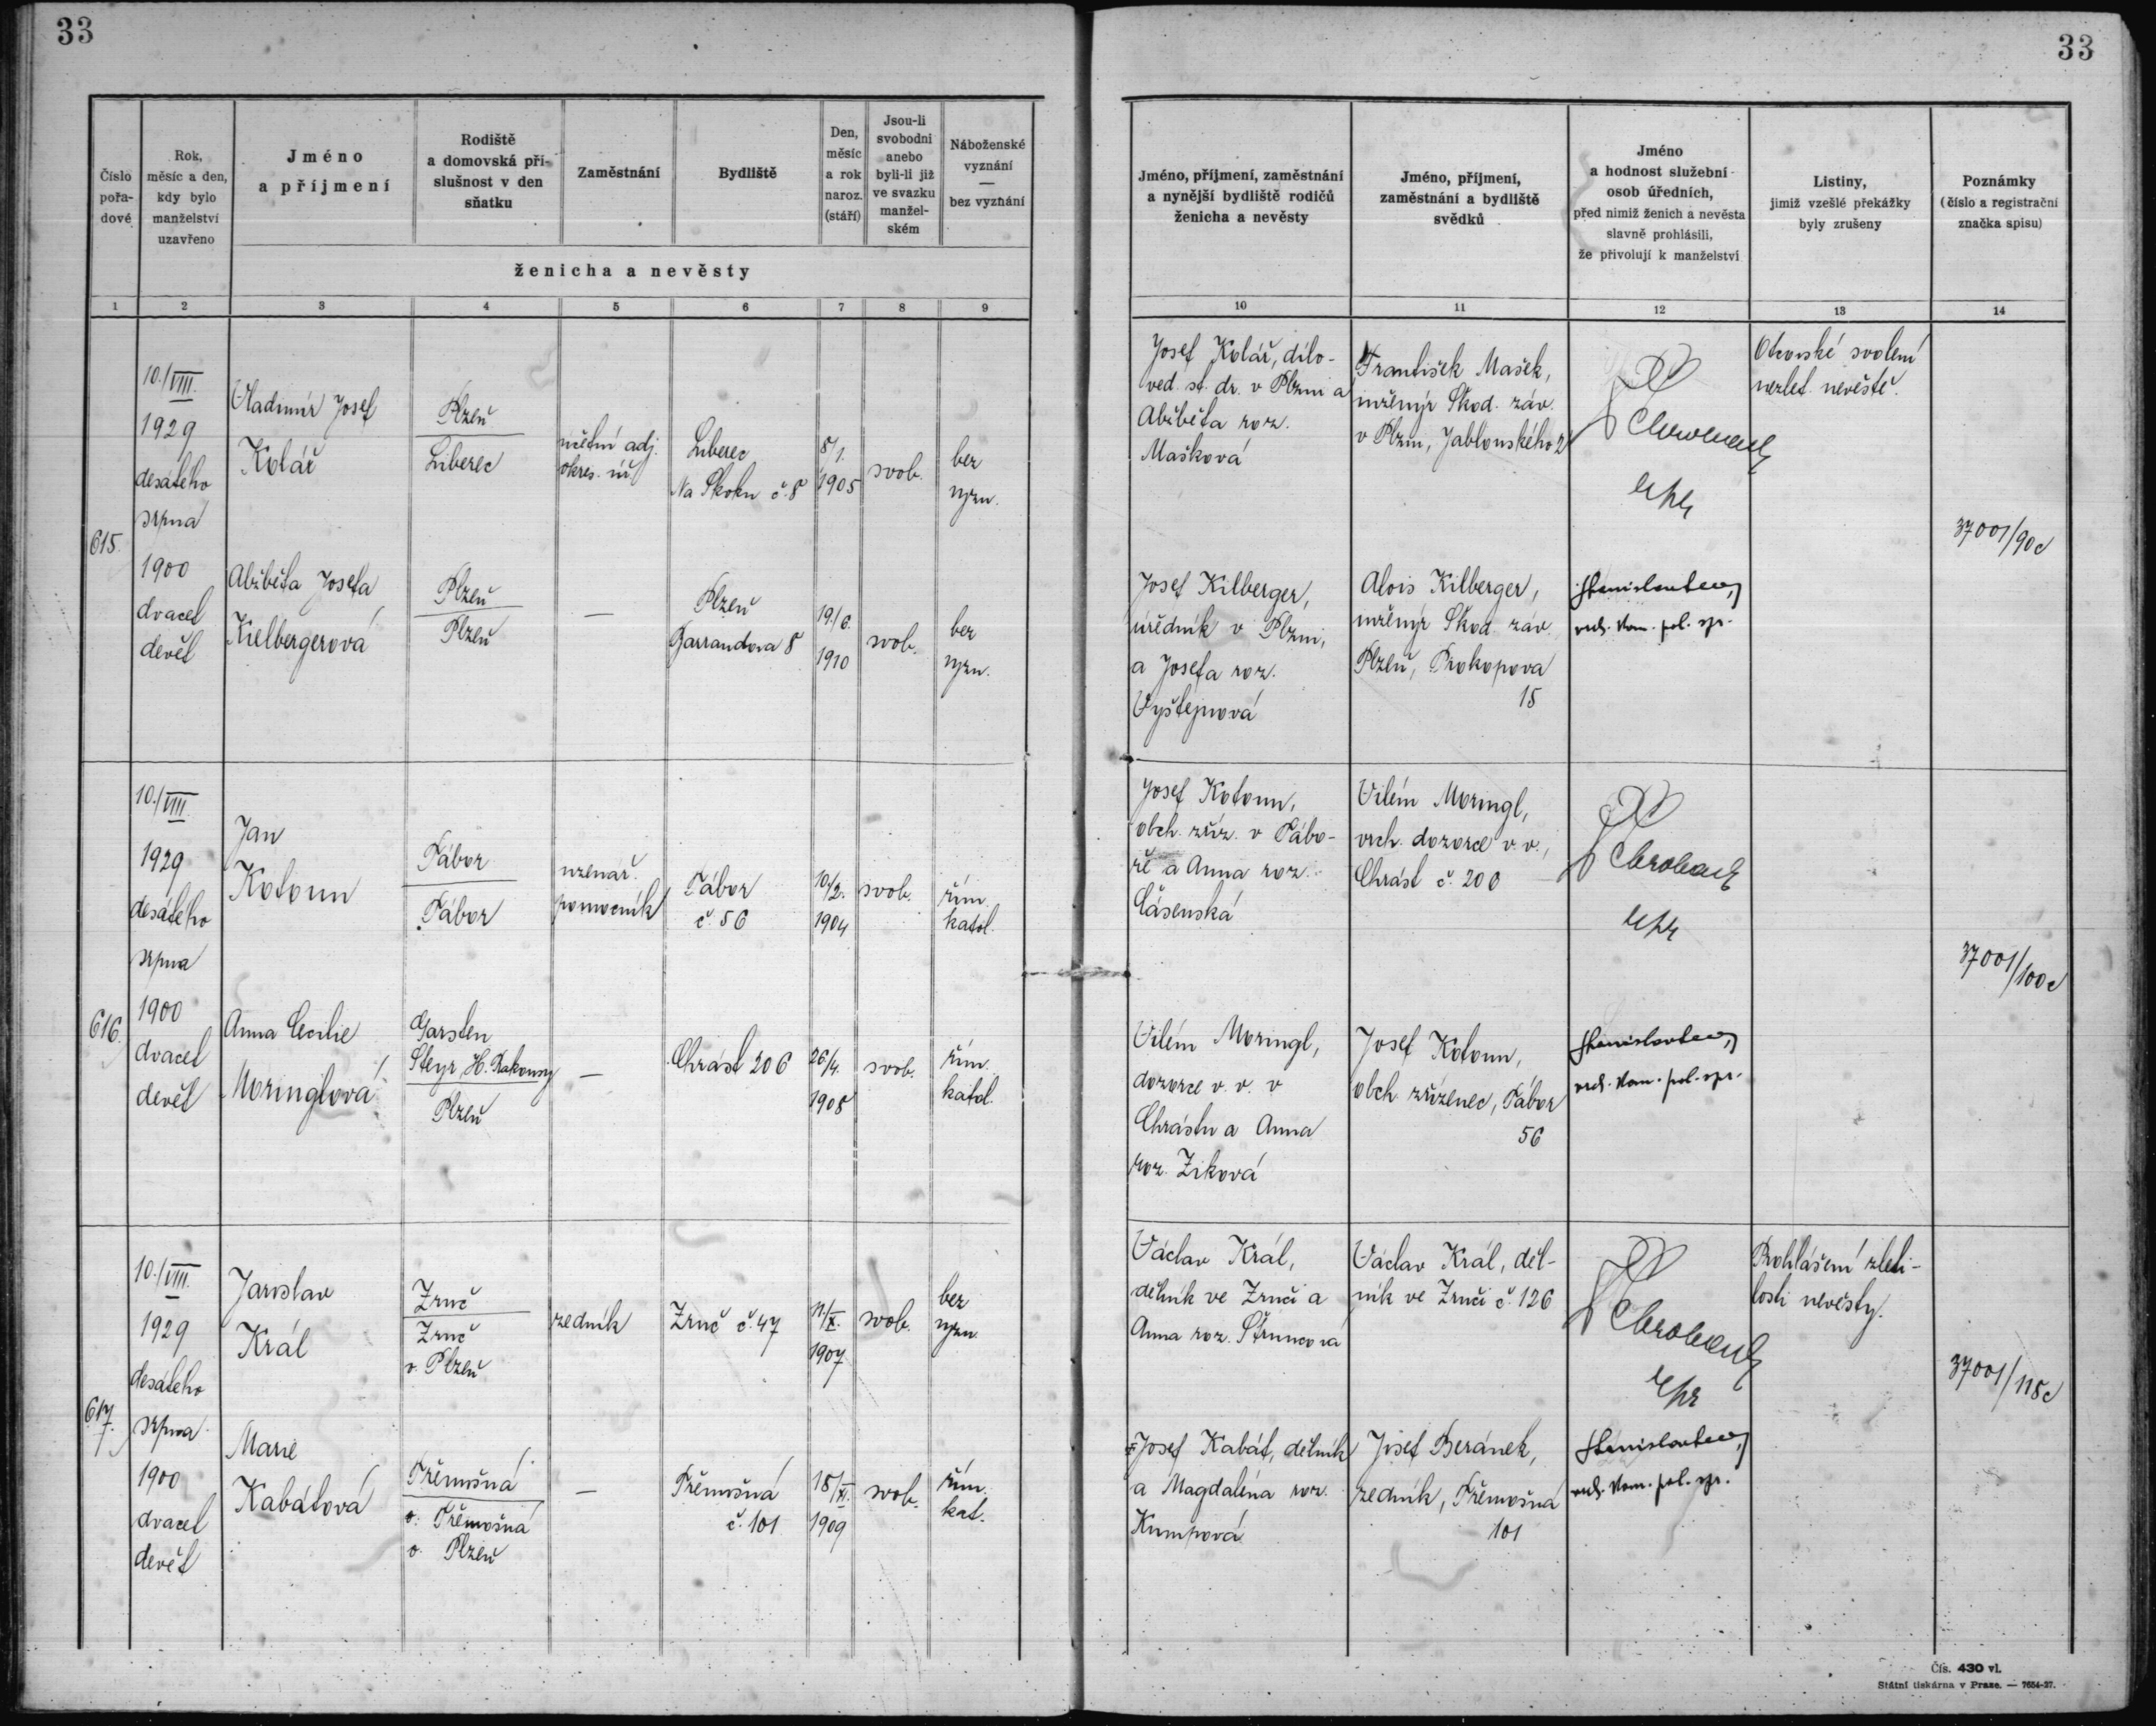 33
33
Číslo pořa-dové
Rok, měsíc a den, kdy bylo manželství uzavřeno
Jméno a příjmení
Rodiště a domovská pří-slušnost v den sňatku
Zaměstnání
Bydliště
Den, měsíc a rok naroz. (stáří)
Jsou-li svobodni anebo byli-li již ve svazku manžel-ském
Náboženské vyznání — bez vyznání
ženicha a nevěsty
Jméno, příjmení, zaměstnání a nynější bydliště rodičů ženicha a nevěsty
Jméno, příjmení, zaměstnání a bydliště svědků
Jméno a hodnost služební osob úředních, před nimiž ženich a nevěsta slavně prohlásili, že přivolují k manželství
Listiny, jimiž vzešlé překážky byly zrušeny
Poznámky (číslo a registrační značka spisu)
1 2 3 4 5 6 7 8 9 10 11 12 13 14
615.
10./VIII.
1929
desátého
srpna
1900
dvacet
devět
Vladimír Josef
Kolář
Plzeň
Liberec
účetní adj.
okres. úř.
Liberec
Na Skoku č. 8
8/1.
1905
svob.
bez
vyzn.
Josef Kolář, dílo-
ved. st. dr. v Plzni a
Alžběta roz.
Mašková
František Mašek,
inženýr Škod. záv.
v Plzni, Jablonského 2
Otcovské svolení
nezlet. nevěstě.
37001/90c
Alžběta Josefa
Kielbergerová
Plzeň
Plzeň
—
Plzeň
Barrandova 8
19./6.
1910
svob.
bez
vyzn.
Josef Kilberger,
úředník v Plzni,
a Josefa roz.
Vyštejnová
Alois Kilberger,
inženýr Škod. záv.
Plzeň, Prokopova
15
vrch. kom. pol. spr.
616.
10./VIII.
1929
desátého
srpna
1900
dvacet
devět
Jan
Kotoun
Tábor
Tábor
uzenář.
pomocník
Tábor
č. 56
10/2.
1904
svob.
řím.
katol.
Josef Kotoun,
obch. zříz. v Tábo-
ře a Anna roz.
Čásenská
Vilém Moringl,
vrch. dozorce v. v.,
Chrást č. 200
37001/100c
Anna Cecilie
Moringlová
Garsten
Steyr, H. Rakousy
Plzeň
—
Chrást 206
26/4.
1908
svob.
řím.
katol.
Vilém Moringl,
dozorce v. v. v
Chrástu a Anna
roz. Ziková
Josef Kotoun,
obch. zřízenec, Tábor
56
vrch. kom. pol. spr.
617.
10./VIII.
1929
desátého
srpna
1900
dvacet
devět
Jaroslav
Král
Zruč
Zruč
o. Plzeň
zedník
Zruč č. 47
11/X.
1907
svob.
bez
vyzn.
Václav Král,
dělník ve Zruči a
Anna roz. Štruncová
Václav Král, děl-
ník ve Zruči č. 126
Prohlášení zleti-
losti nevěsty.
37001/118c
Marie
Kabátová
Třemošná
o. Třemošná
o. Plzeň
—
Třemošná
č. 101
18/XI.
1909
svob.
řím.
kat.
Josef Kabát, dělník
a Magdaléna roz.
Kumpová
Josef Beránek,
zedník, Třemošná
101
vrch. kom. pol. spr.
Čís. 430 vl.
Státní tiskárna v Praze. — 7654-27.